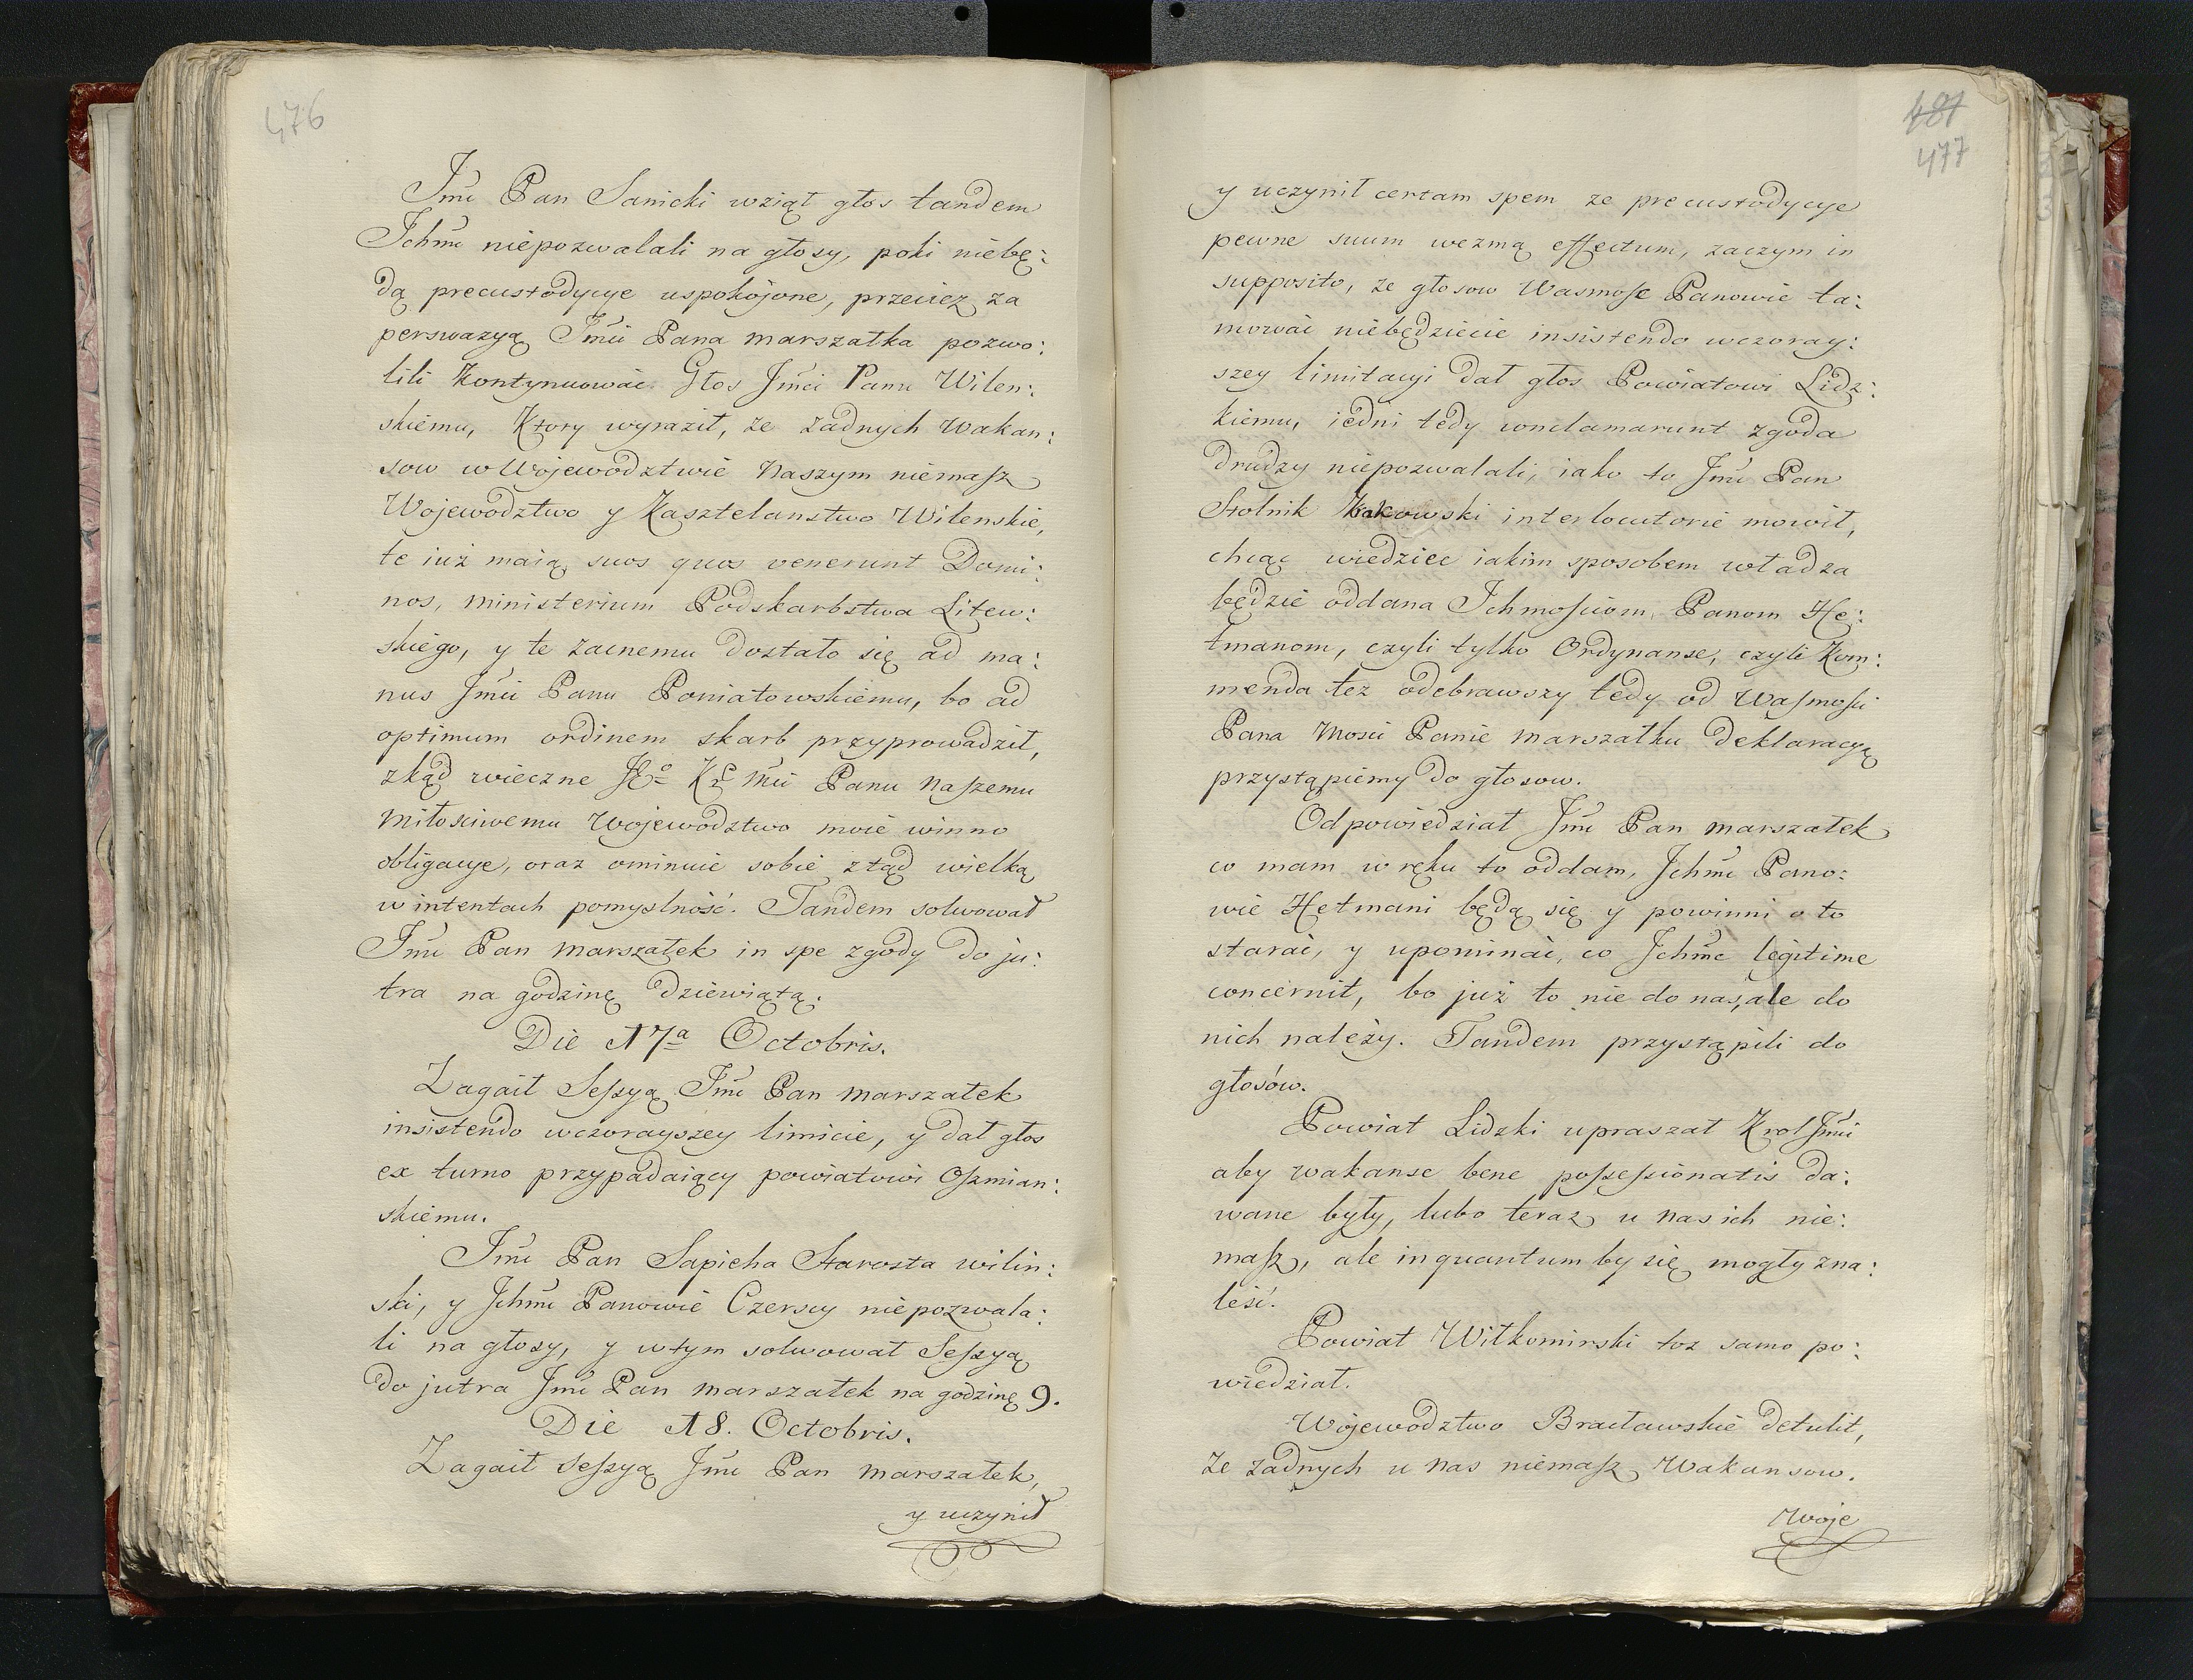 476
Jmć Pan Sanicki wziął głos tandem
Ichmć niepozwalali na głosy, poki niebę:
dą precustodycye uspokojone, przeciez za
perswazyą Jmći Pana marszałka pozwo:
lili kontynuować Głos Jmći Panu Wilen:
skiemu, Ktory wyraził, ze zadnych Wakan:
sow w Wojewodztwie Naszym niemasz
Wojewodztwo y Kasztelanstwo Wilenskie,
te iuż maią suos quos venerunt Domi:
nos, ministerium Podskarbstwa Litew:
skiego, y te zacnemu dostało się ad ma:
nus Jmći Panu Poniatowskiemu, bo ad
optimum ordinem skarb przyprowadził,
zkąd wieczne JEo Kr Mći Panu Naszemu
Miłosciwemu Wojewodztwo moie winno
obligacye, oraz ominuie sobie ztąd wielką
w intentach pomyslność. Tandem solwował
Jmć Pan Marszałek in spe zgody do ju:
tra na godzinę dziewiątą.
Die 17a Octobris.
Zagaił Sessyą Jmć Pan Marszałek
insistendo wczorayszey limicie, y dał głos
ex turno przypadaiący powiatowi Oszmian:
skiemu.
Jmć Pan Sapieha Starosta wilin:
ski, y Jchmć Panowie Czerscy niepozwala:
li na głosy, y wtym solwował Sessyą
do jutra Jmć Pan marszałek na godzinę 9.
Die 18. Octobris.
Zagaił sessyą Jmć Pan marszałek,
y uczynił
481
477
y uczynił certam spem ze precustodycye
pewne suum wezmą effectum, zaczym in
supposito, ze głosow Wasmosc Panowie ta:
mować niebędziecie insistendo wczoray:
szey limitacyi dał głos Powiatowi Lidz:
kiemu, iedni tedy conclamarunt zgoda
drudzy niepozwalali, iako to Jmć Pan
Stolnik interlocutorie mowił,
chcąc wiedziec iakim sposobem władza
będzie oddana Ichmosciom Panom He:
tmanom, czyli tylko Ordynanse, czyli Kom:
menda tez odebrawszy tedy od Wasmosci
Pana Mosci Panie marszałku deklaracyą
przystąpiemy do głosow.
Odpowiedział Jmć Pan marszałek
co mam w ręku to oddam, Jchmć Pano:
wie Hetmani będą się y powinni o to
starać, y upominać, co Jchmć legitime
concernit, bo już to nie do nas, ale do
nich należy. Tandem przystąpili do
głosów.
Powiat Lidzki upraszał Krol Jmći
aby wakanse bene possessionatis da:
wane były, lubo teraz u nas ich nie:
masz, ale inquantum by się mogły zna:
leść.
Powiat Wiłkomirski toz samo po:
wiedział.
Wojewodztwo Bracławskie detulit,
ze zadnych u nas niemasz Wakansow.
Woje